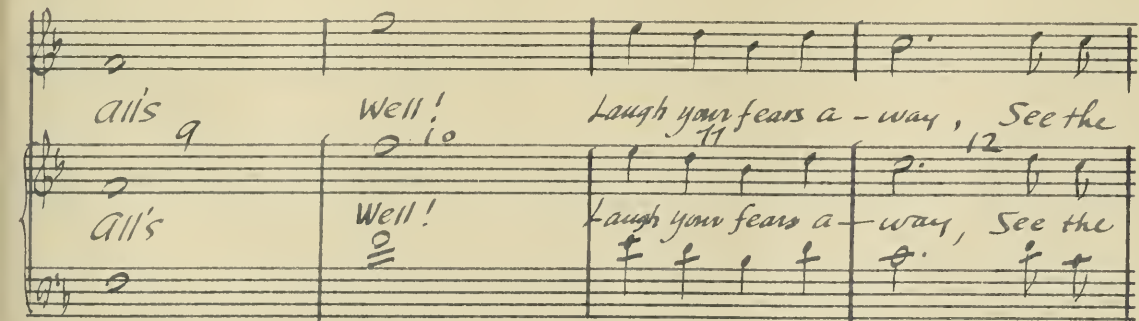 All's Well! Laugh your fears a-way, See the
9 10 11 12
All's Well! Laugh your fears a-way, See the